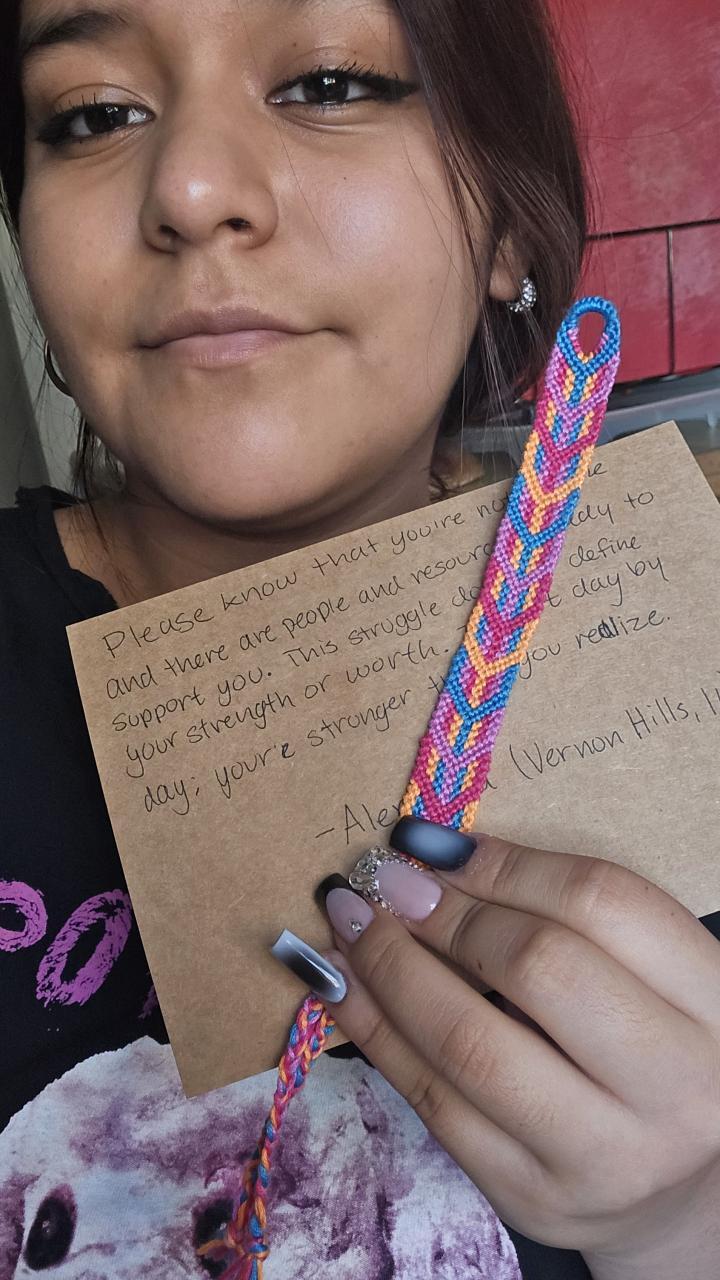 Please know that you're
and there are people and to
support you. This struggle define
your strength or worth. day by
day; your'e stronger you realize.
(Vernon Hills,